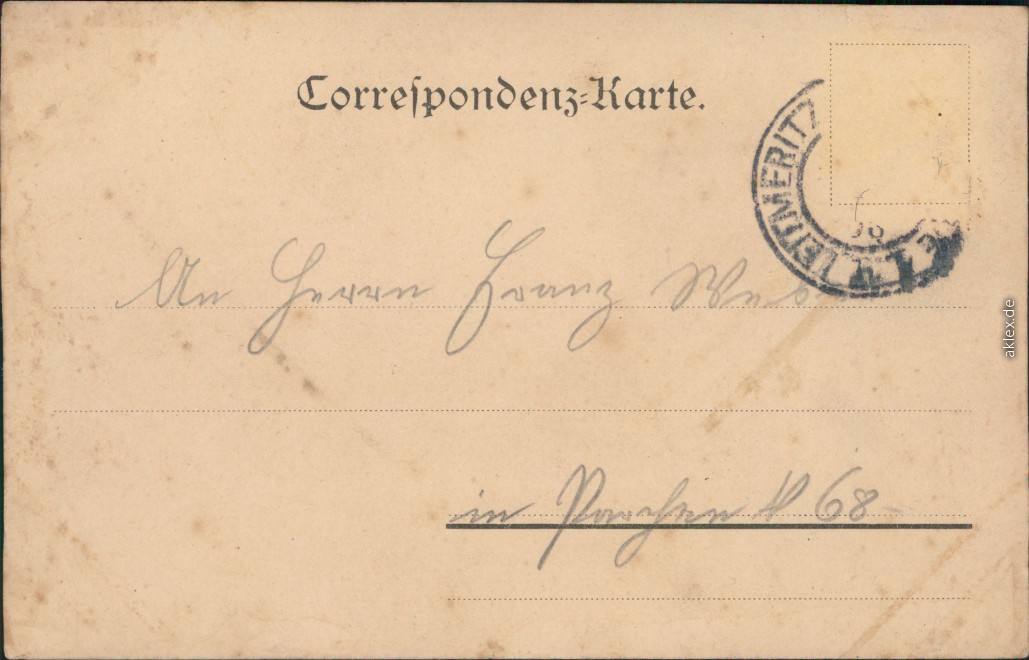 Correſpondenz-Karte.
LEITMERITZ
98
An Herrn Franz
in Parchen N 68
aklex.de